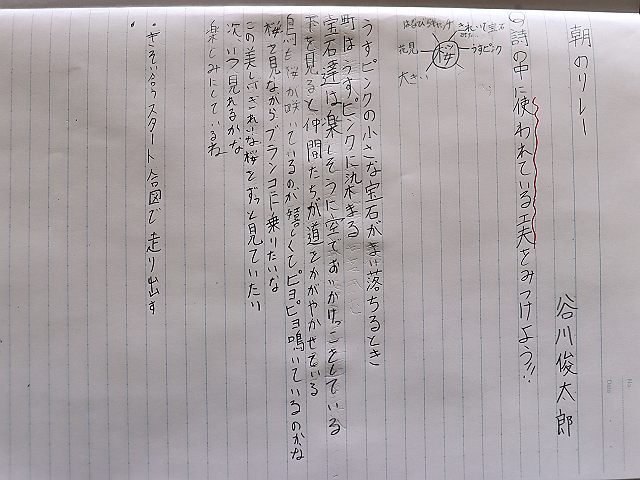 朝のリレー
谷川俊太郎
◎詩の中に使われている工夫をみつけよう!!
桜
はなびらキャッチ
きれい
宝石
花見
うすピンク
大きい
うすピンクの小さな宝石がまい落ちるとき
町はうすピンクに染まる
宝石達は楽しそうに空でおいかけっこをしている
下を見ると仲間たちが道をかがやかせている
鳥も桜が咲いているのが嬉しくてピヨピヨ鳴いているのかな
桜を見ながらブランコに乗りたいな
この美しいきれいな桜をずっと見ていたい
次いつ見れるかな
楽しみにしているね
・きそい合うスタート合図で走り出す
・
No.
Date